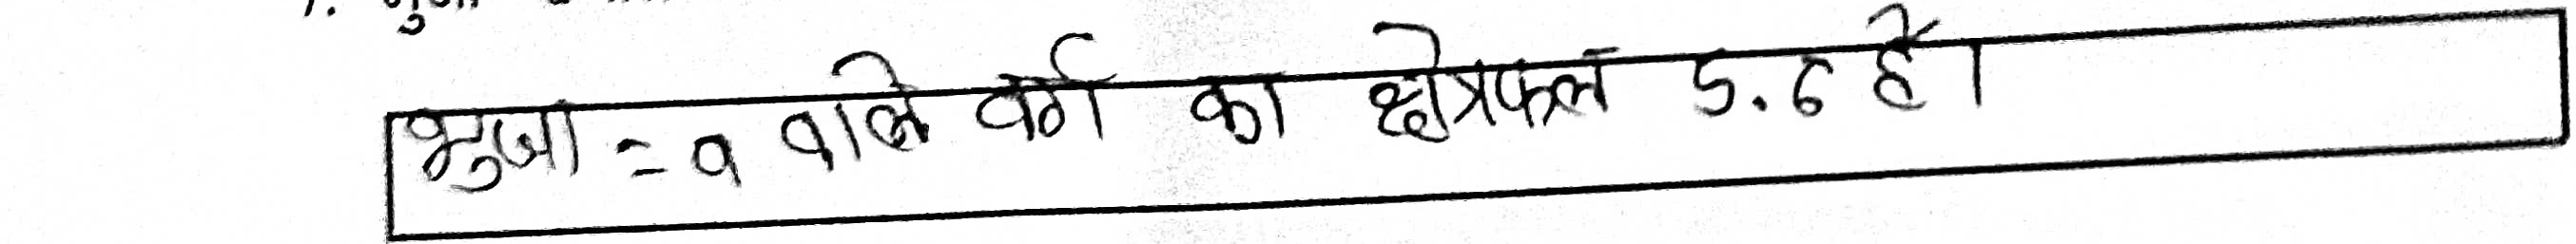 भुजा = a वाले वर्ग का क्षेत्रफल 5.6 है।